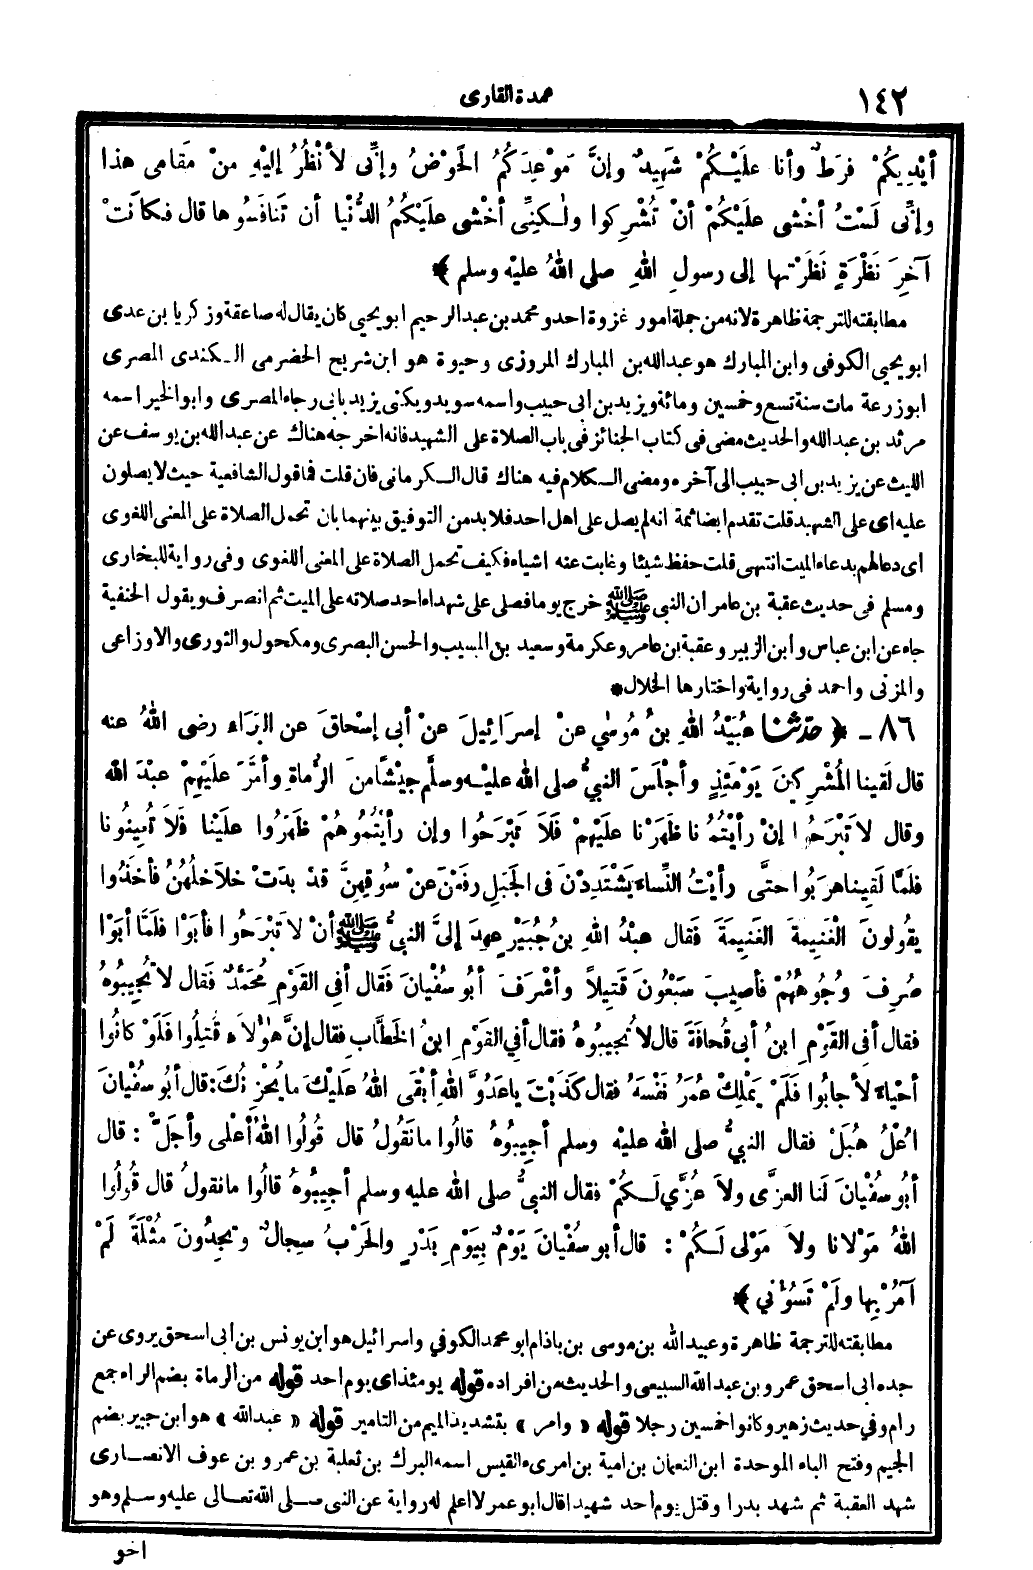 ١٤٢
عمدة القارى
أيْدِيكُمْ فَرَطٌ وأنا عَلَيْكُمْ شَهِيدٌ وإنَّ مَوْعِدَكُمُ الحَوْضُ وإنِّى لأنْظُرُ إليْهِ مِنْ مَقامى هذا
وإنِّى لَسْتُ أخْشى عَلَيْكُمْ أنْ تُشْرِكوا ولٰكِنِّى أخْشى عَلَيْكُمُ الدُّنْيا أن تَنافَسُوها قال فكانَتْ
آخِرَ نَظْرَةٍ نَظَرْتُها إلى رسولِ اللهِ صلى اللهُ عليْه وسلم ﴾
مطابقته للترجمة ظاهرة لانه من جملة امور غزوة احد ومحمد بن عبد الرحيم ابو يحيى كان يقال له صاعقة وزكريا بن عدى
ابو يحيى الكوفى وابن المبارك هو عبد الله بن المبارك المروزى وحيوة هو ابن شريح الحضرمى الكندى المصرى
ابو زرعة مات سنة تسع وخمسين ومائة ويزيد بن ابى حبيب واسمه سويد ويكنى يزيد بابى رجاء المصرى وابو الخير اسمه
مرثد بن عبد الله والحديث مضى فى كتاب الجنائز فى باب الصلاة على الشهيد فانه اخرجه هناك عن عبد الله بن يوسف عن
الليث عن يزيد بن ابى حبيب الى آخره ومضى الكلام فيه هناك قال الكرمانى فان قلت فما قول الشافعية حيث لا يصلون
عليه اى على الشهيد قلت تقدم ايضا ثمة انه لم يصل على اهل احد فلا بد من التوفيق بينهما بان تحمل الصلاة على المعنى اللغوى
اى دعا لهم بدعاء الميت انتهى قلت حفظ شيئا وغابت عنه اشياء فكيف تحمل الصلاة على المعنى اللغوى وفى رواية للبخارى
ومسلم فى حديث عقبة بن عامر ان النبى ﷺ خرج يوما فصلى على شهداء احد صلاته على الميت ثم انصرف ويقول الحنفية
جاء عن ابن عباس وابن الزبير وعقبة بن عامر وعكرمة وسعيد بن المسيب والحسن البصرى ومكحول والثورى والاوزاعى
والمزنى واحمد فى رواية واختارها الخلال *
٨٦ - ﴿ حدّثنا عُبَيْدُ اللهِ بنُ مُوسٰي عنْ إسرَائِيلَ عنْ أبى إسْحاقَ عن البَرَاء رضى اللهُ عنه
قال لَقينا المُشْرِكينَ يَوْمَئِذٍ وأجْلَسَ النبيُّ صلى الله عليْه وسلَّم جيْشًا منَ الرُّماةِ وأمَّرَ علَيْهِمْ عبْدَ اللهِ
وقال لاَ تَبْرَحُوا إنْ رأيْتُمُونا ظَهَرْنا علَيْهِمْ فَلاَ تَبْرَحُوا وإن رأيْتُمُوهُمْ ظَهَرُوا علَيْنا فَلاَ تُعِينُونا
فلَمَّا لَقِيناهربُوا حتَّى رأيْتُ النِّساءَ يَشْتَدِدْنَ فى الجَبَلِ رفَعْنَ عنْ سُوقِهِنَّ قدْ بدَتْ خلاَخلُهُنَّ فأخَذُوا
يقُولونَ الْغَنِيمَةَ الغَنِيمَةَ فقال عبْدُ اللهِ بنُ جُبَيْرٍ عهِدَ إليَّ النبيُّ ﷺ أنْ لاَ تَبْرَحُوا فأبَوْا فلَمَّا أبَوْا
صُرِفَ وُجُوهُهُمْ فأصِيبَ سَبْعُونَ قَتِيلاً وأشْرَفَ أبُو سُفْيانَ فقال أفِى القَوْمِ مُحَمَّدٌ فقال لا تُجِيبُوهُ
فقال أفِى القَوْمِ ابنُ أبى قُحافَةَ قال لاَ تُجِيبُوهُ فقال أفى القَوْمِ ابنُ الخَطَّابِ فقال إنَّ هٰؤلاَءِ قُتِلُوا فلَوْ كانُوا
أحْياءً لأجابُوا فلَمْ يَمْلِكْ عُمَرُ نَفْسَهُ فقال كَذَبْتَ ياعَدُوَّ اللهِ أبْقَى اللهُ عَلَيْكَ ما يُحْزِنُكَ : قال أبُو سُفْيانَ
اُعْلُ هُبَلْ فقال النبيُّ صلى الله عليْه وسلم أجِيبُوهُ قالُوا مانَقُولُ قال قُولُوا اللهُ أعْلى وأجَلّ : قال
أبُو سُفْيانَ لَنا العزَّى ولاَ عُزَّي لَكُمْ فقال النبيُّ صلى الله عليه وسلم أجيبُوهُ قالُوا مانقولُ قال قُولُوا
اللهُ مَوْلانا ولاَ مَوْلى لَكُمْ : قال أبو سفْيانَ يَوْمٌ بِيَوْمِ بَدْرٍ والحَرْبُ سِجالٌ وتجِدُونَ مُثْلَةً لَمْ
آمُرْ بِها ولَمْ تَسُؤْنِي ﴾
مطابقته للترجمة ظاهرة وعبيد الله بن موسى بن باذام ابو محمد الكوفي واسرائيل هو ابن يونس بن أبى اسحق يروى عن
جده ابى اسحق عمرو بن عبد الله السبيعى والحديث من افراده قوله يومئذ اى يوم احد قوله من الرماة بضم الراء جمع
رام وفي حديث زهير وكانوا خمسين رجلا قوله « وامر » بتشديد الميم من التامير قوله « عبد الله » هو ابن جبير بضم
الجيم وفتح الباء الموحدة ابن النعمان بن امية بن امرىء القيس اسمه البرك بن ثعلبة بن عمرو بن عوف الانصارى
شهد العقبة ثم شهد بدرا وقتل يوم احد شهيدا قال ابو عمر لا اعلم له رواية عن النبى صلى الله تعالى عليه وسلم وهو
اخو